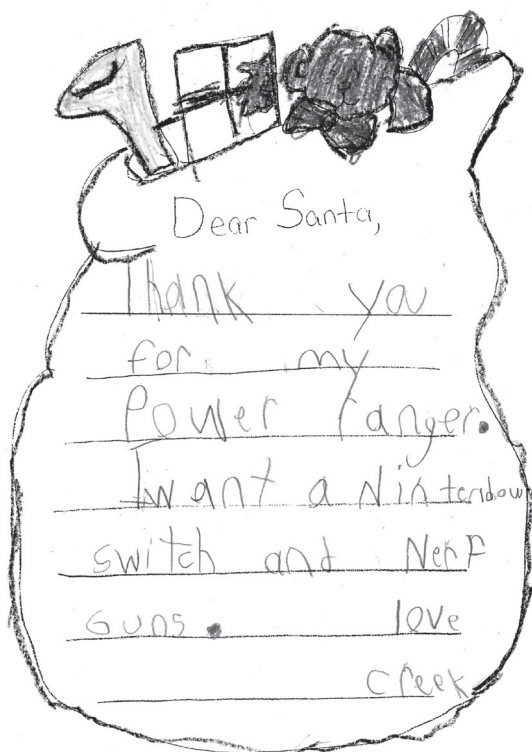 Dear Santa,
Thank you
for my
Power ranger.
I want a Nintendow
switch and Nerf
Guns. love
creek